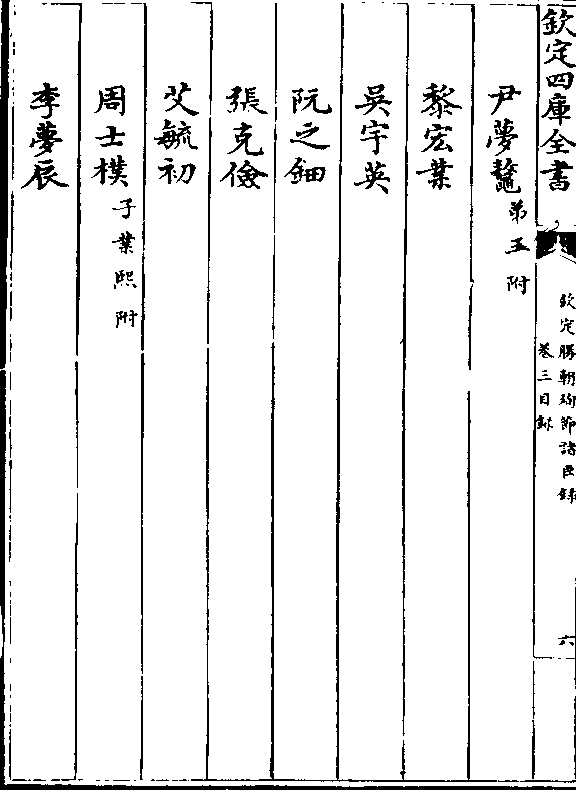 欽定四庫全書
欽定勝朝殉節諸臣錄
卷三目錄
六
尹夢鼇弟王附
黎宏業
吳宇英
阮之鈿
張克儉
艾毓初
周士樸子業熙附
李夢辰